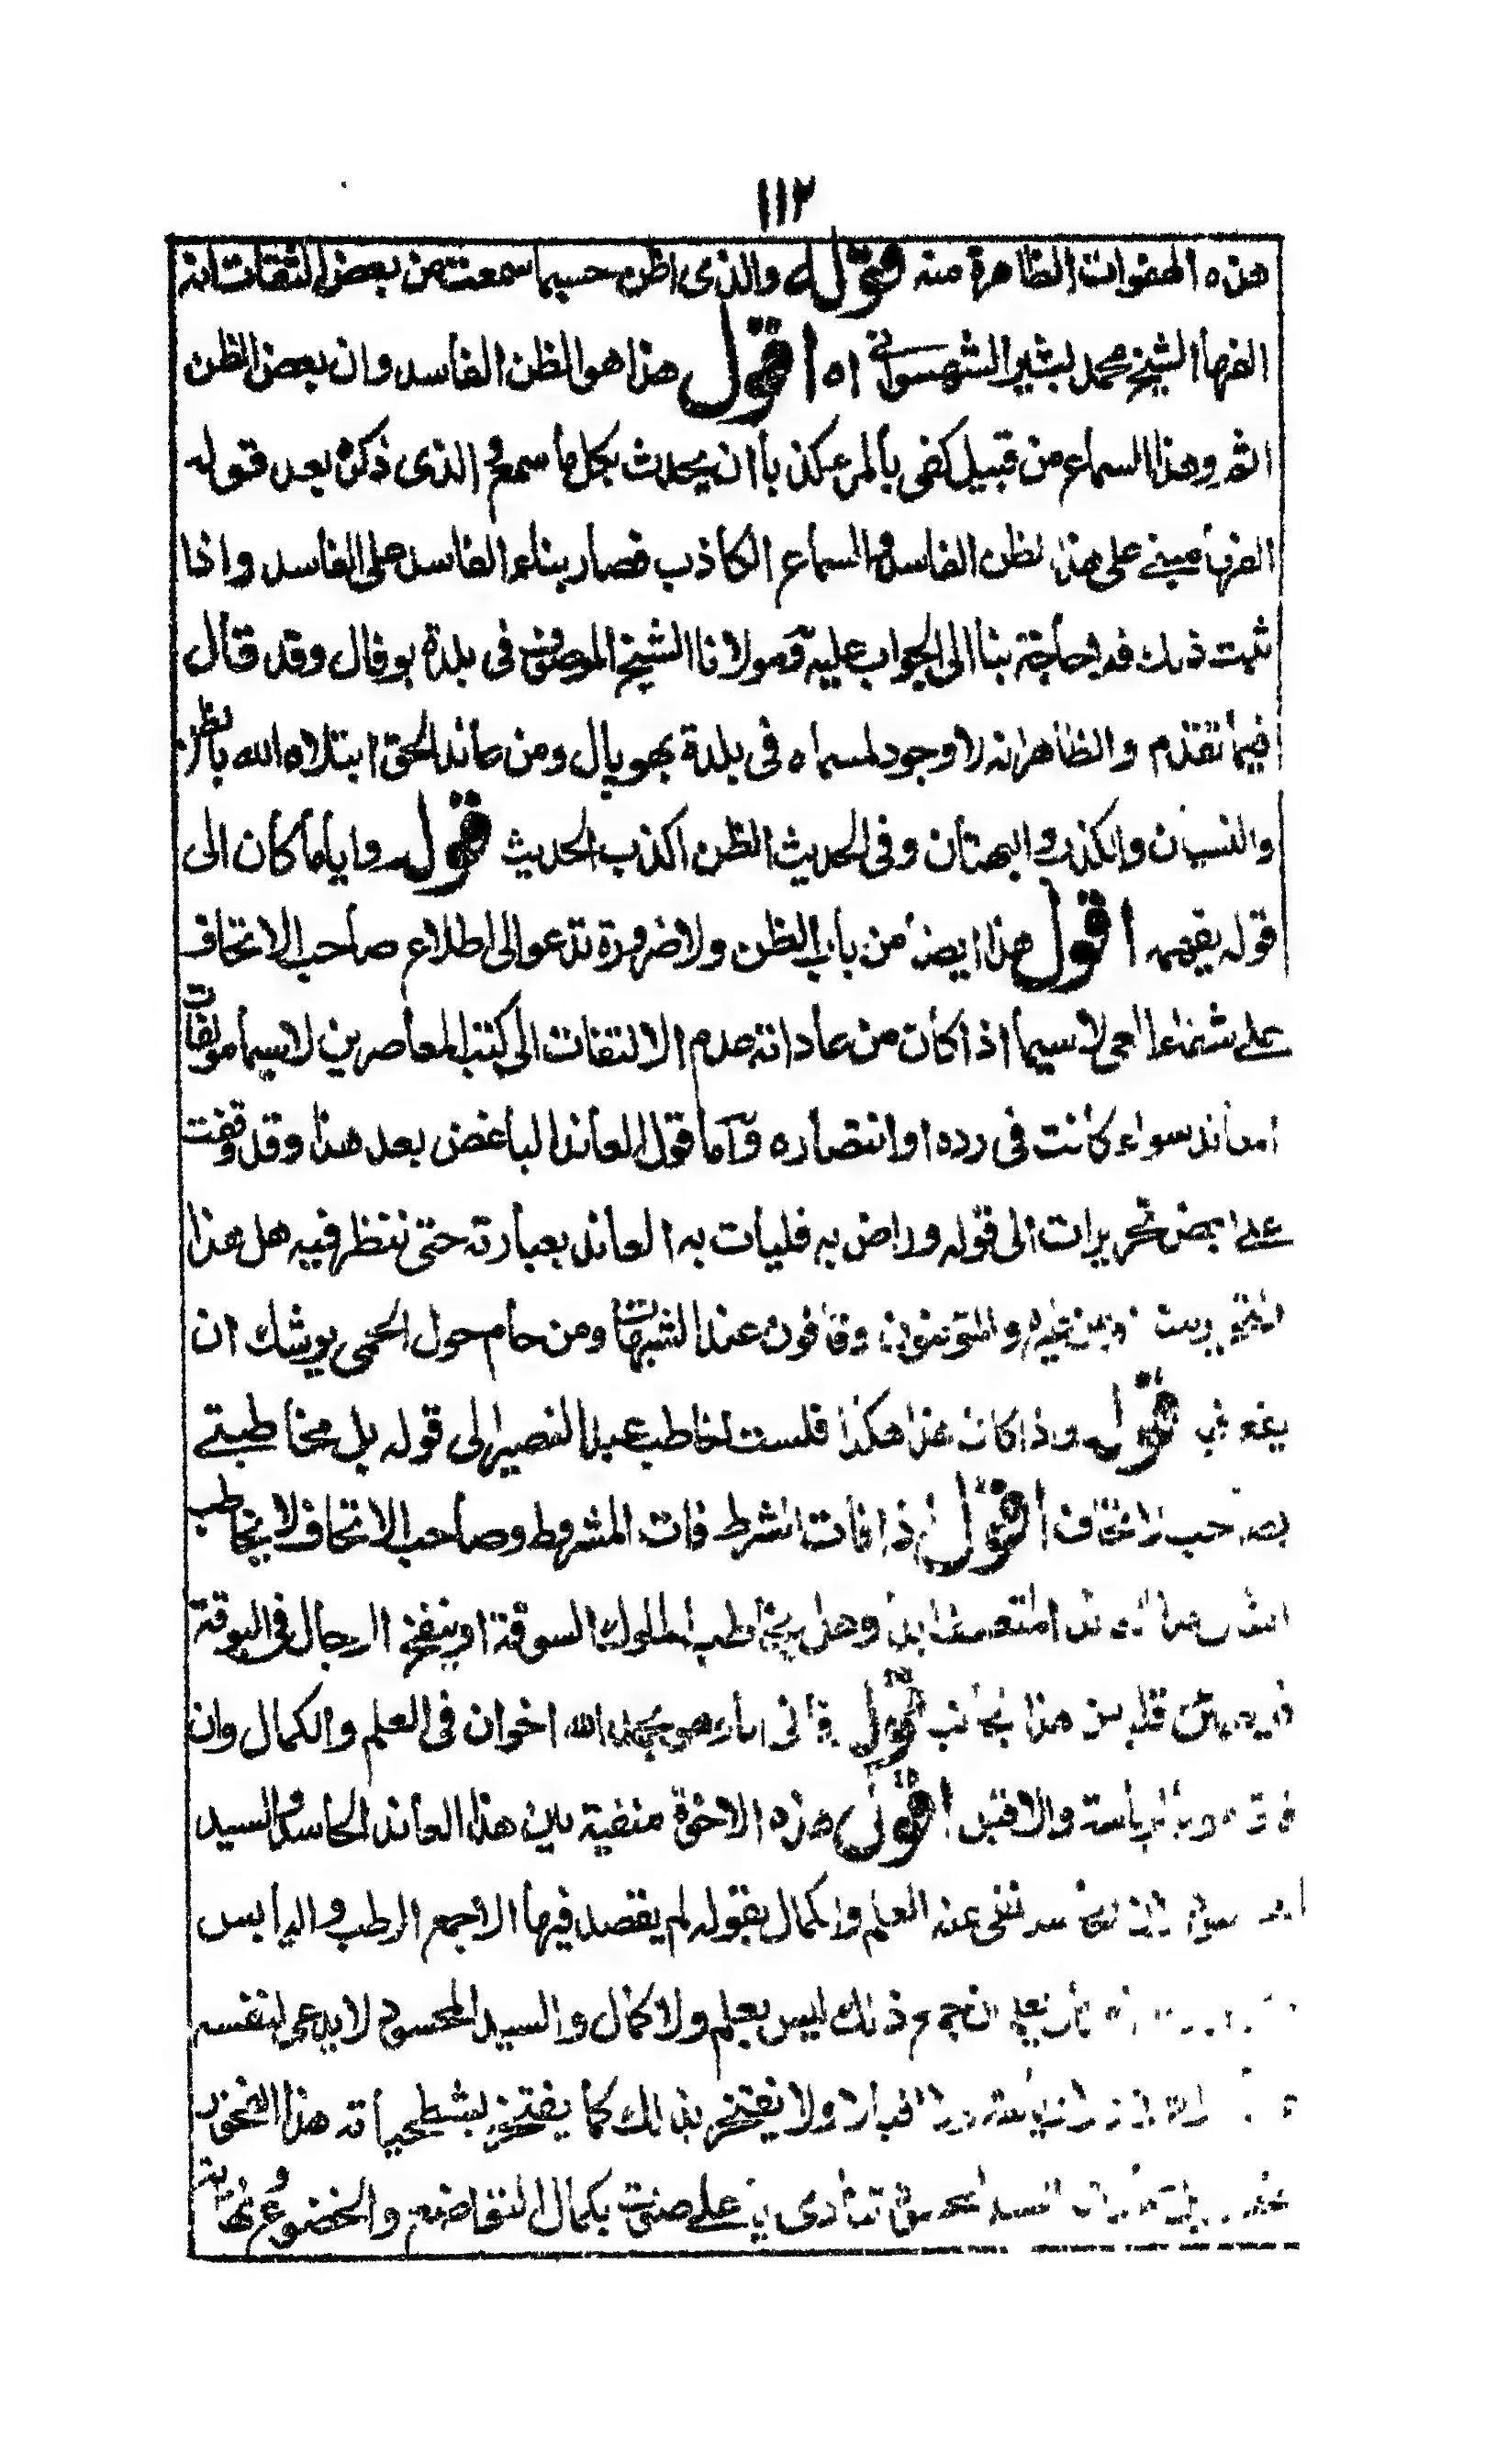 ١١٢
هذه الهفوات الظاهرة منه قوله والذى اظن حسبما سمعت من بعض الثقات انه
الفها الشيخ محمد بشير السهسواني اه اقول هذا هو الظن الفاسد وان بعض الظن
اثم وهذا السماع من قبيل كفى بالمرء كذبا ان يحدث بكل ما سمع والذى ذكره بعد قوله
الفها مبنے على هذا الظن الفاسد والسماع الكاذب فصار بناء الفاسد على الفاسد واذا
ثبت ذلك فلا حاجة بنا الى الجواب عليه ومولانا الشيخ الموصوف فى بلدة بوفال وقد قال
فيما تقدم والظاهر انه لا وجود لمسماه فى بلدة بهوپال ومن عاند الحق ابتلاه الله بالظن
والنسيان والكذب والبهتان وفى الحديث الظن اكذب الحديث قوله وايا ما كان الى
قوله يفهمه اقول هذا ايضا من باب الظن ولا ضرورة تدعو الى اطلاع صاحب الاتحاف
علے شفاء العى لا سيما اذا كان من عاداته عدم الالتفات الى كتب المعاصرين لا سيما مولفات
المعاند سواء كانت فى رده او انتصاره واما قول المعاند الباغض بعد هذا وقد وقفت
علے بعض تحريرات الى قوله وراض به فليات به المعاند بعبارته حتى ننظر فيه هل هذا
التحرير منه او من غيره والمؤمنون وقافون عند الشبهات ومن حام حول الحمى يوشك ان
يقع فيه قوله واذا كان هذا هكذا فلست اخاطب عبد النصير الى قوله بل مخاطبتے
بصاحب الاتحاف اقول اذا فات الشرط فات المشروط وصاحب الاتحاف لا يخاطب
المعاند المتعصب ابدا وهل يخاطب الملوك السوقة او ينفخ الرجال فى البوقة
قلبه من هذا الجانب قوله فانى اياه بحمد الله اخوان فى العلم والكمال وان
بالرياسة والاقبال اقول هذه الاخوة منفية بين هذا المعاند الحاسد والسيد
نفى عنه العلم والكمال بقوله لم يقصد فيها الا جمع الرطب واليابس
جمع ذلك ليس بعلم ولا كمال والسيد المحسود لا يدعى لنفسه
ولا اقبالا ولا يفتخر بذلك كما يفتخر بشطحياته هذا الفخور
السيد تنادى باعلے صوت بكمال التواضع والخضوع نهاية